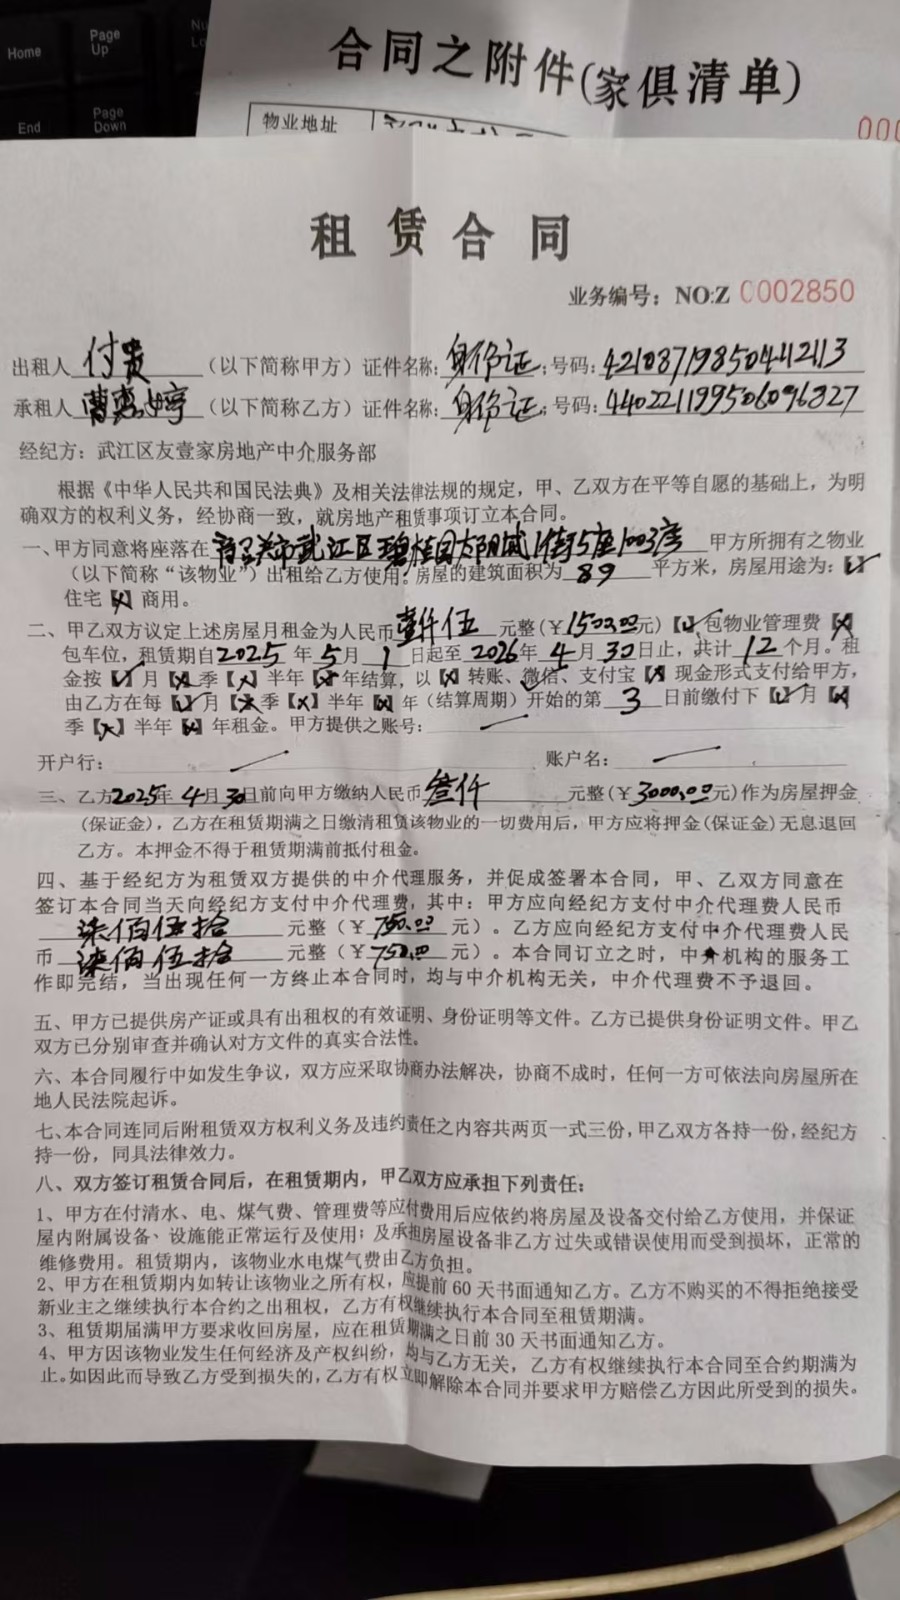 Home
Page Up
End
Page Down
合同之附件(家俱清单)
物业地址
000
租赁合同
业务编号：NO:Z 0002850
出租人 付贵 （以下简称甲方）证件名称：身份证；号码：421087198504112113
承租人 曹惠婷 （以下简称乙方）证件名称：身份证；号码：440221199506096827
经纪方：武江区友壹家房地产中介服务部
根据《中华人民共和国民法典》及相关法律法规的规定，甲、乙双方在平等自愿的基础上，为明
确双方的权利义务，经协商一致，就房地产租赁事项订立本合同。
一、甲方同意将座落在 韶关市武江区碧桂园太阳城1街5座1003房 甲方所拥有之物业
（以下简称“该物业”）出租给乙方使用。房屋的建筑面积为 89 平方米，房屋用途为：【✓】
住宅【×】商用。
二、甲乙双方议定上述房屋月租金为人民币 壹仟伍 元整(￥1500.00元)【✓】包物业管理费【×】
包车位，租赁期自2025年5月1日起至2026年4月30日止，共计12个月。租
金按【✓】月【×】季【×】半年【×】年结算，以【×】转账、微信、支付宝【×】现金形式支付给甲方，
由乙方在每【✓】月【×】季【×】半年【×】年（结算周期）开始的第 3 日前缴付下【✓】月【×】
季【×】半年【×】年租金。甲方提供之账号：
开户行： 账户名：
三、乙方2025年4月30日前向甲方缴纳人民币 叁仟 元整(￥3000.00元)作为房屋押金
(保证金)，乙方在租赁期满之日缴清租赁该物业的一切费用后，甲方应将押金(保证金)无息退回
乙方。本押金不得于租赁期满前抵付租金。
四、基于经纪方为租赁双方提供的中介代理服务，并促成签署本合同，甲、乙双方同意在
签订本合同当天向经纪方支付中介代理费，其中：甲方应向经纪方支付中介代理费人民币
柒佰伍拾 元整（￥750.00 元）。乙方应向经纪方支付中介代理费人民
币 柒佰伍拾 元整（￥750.00 元）。本合同订立之时，中介机构的服务工
作即完结，当出现任何一方终止本合同时，均与中介机构无关，中介代理费不予退回。
五、甲方已提供房产证或具有出租权的有效证明、身份证明等文件。乙方已提供身份证明文件。甲乙
双方已分别审查并确认对方文件的真实合法性。
六、本合同履行中如发生争议，双方应采取协商办法解决，协商不成时，任何一方可依法向房屋所在
地人民法院起诉。
七、本合同连同后附租赁双方权利义务及违约责任之内容共两页一式三份，甲乙双方各持一份，经纪方
持一份，同具法律效力。
八、双方签订租赁合同后，在租赁期内，甲乙双方应承担下列责任：
1、甲方在付清水、电、煤气费、管理费等应付费用后应依约将房屋及设备交付给乙方使用，并保证
屋内附属设备、设施能正常运行及使用；及承担房屋设备非乙方过失或错误使用而受到损坏，正常的
维修费用。租赁期内，该物业水电煤气费由乙方负担。
2、甲方在租赁期内如转让该物业之所有权，应提前60天书面通知乙方。乙方不购买的不得拒绝接受
新业主之继续执行本合约之出租权，乙方有权继续执行本合同至租赁期满。
3、租赁期届满甲方要求收回房屋，应在租赁期满之日前30天书面通知乙方。
4、甲方因该物业发生任何经济及产权纠纷，均与乙方无关，乙方有权继续执行本合同至合约期满为
止。如因此而导致乙方受到损失的，乙方有权立即解除本合同并要求甲方赔偿乙方因此所受到的损失。